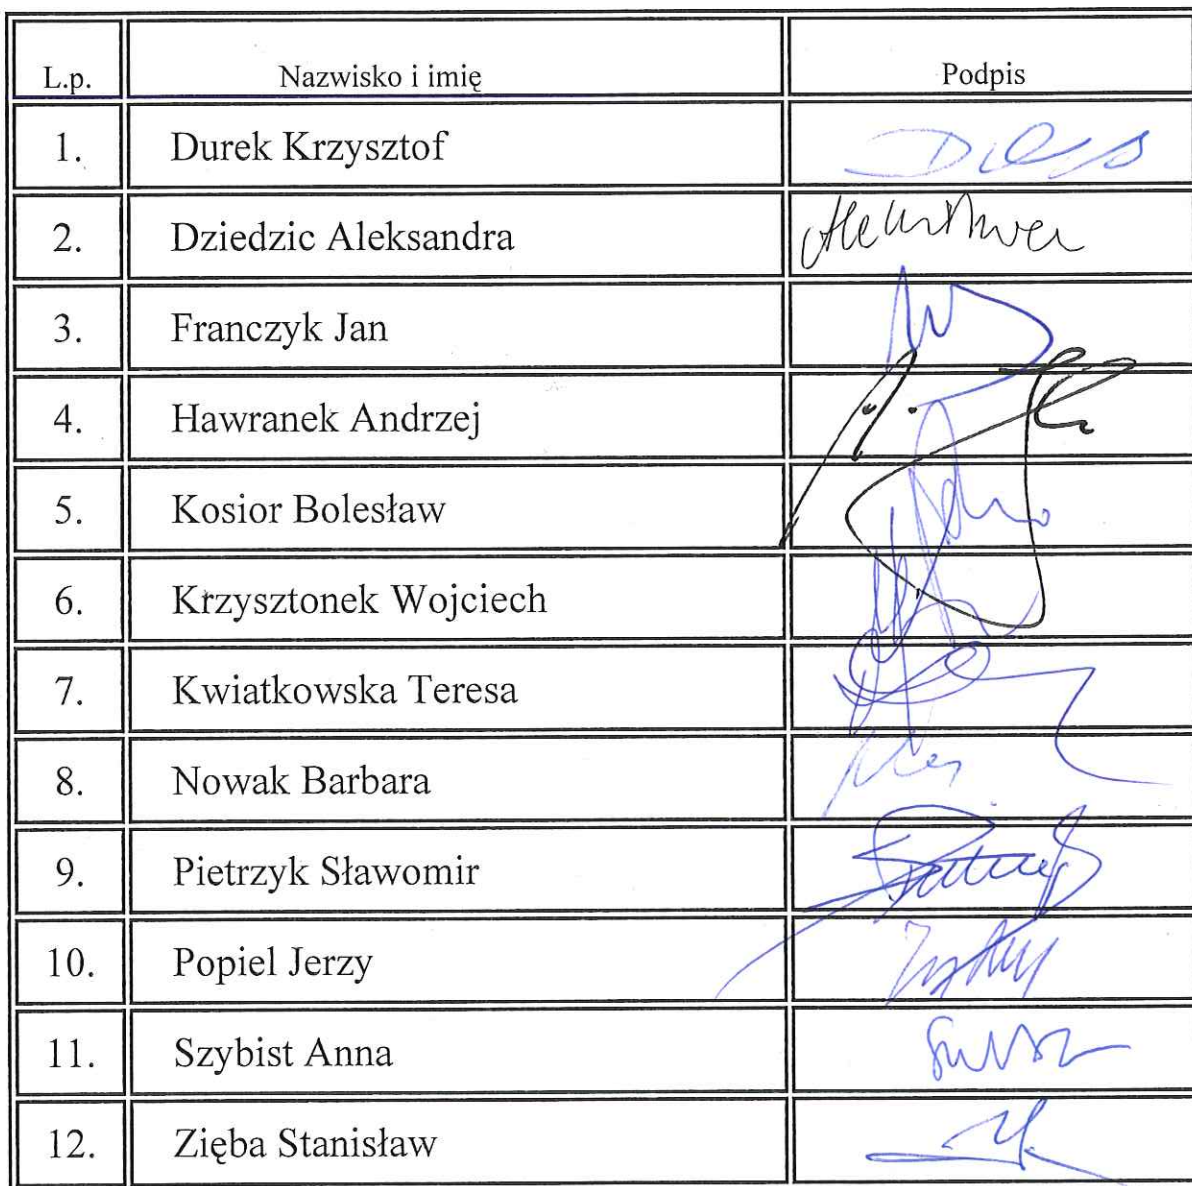 L.p. Nazwisko i imię Podpis
1. Durek Krzysztof
2. Dziedzic Aleksandra
3. Franczyk Jan
4. Hawranek Andrzej
5. Kosior Bolesław
6. Krzysztonek Wojciech
7. Kwiatkowska Teresa
8. Nowak Barbara
9. Pietrzyk Sławomir
10. Popiel Jerzy
11. Szybist Anna
12. Zięba Stanisław